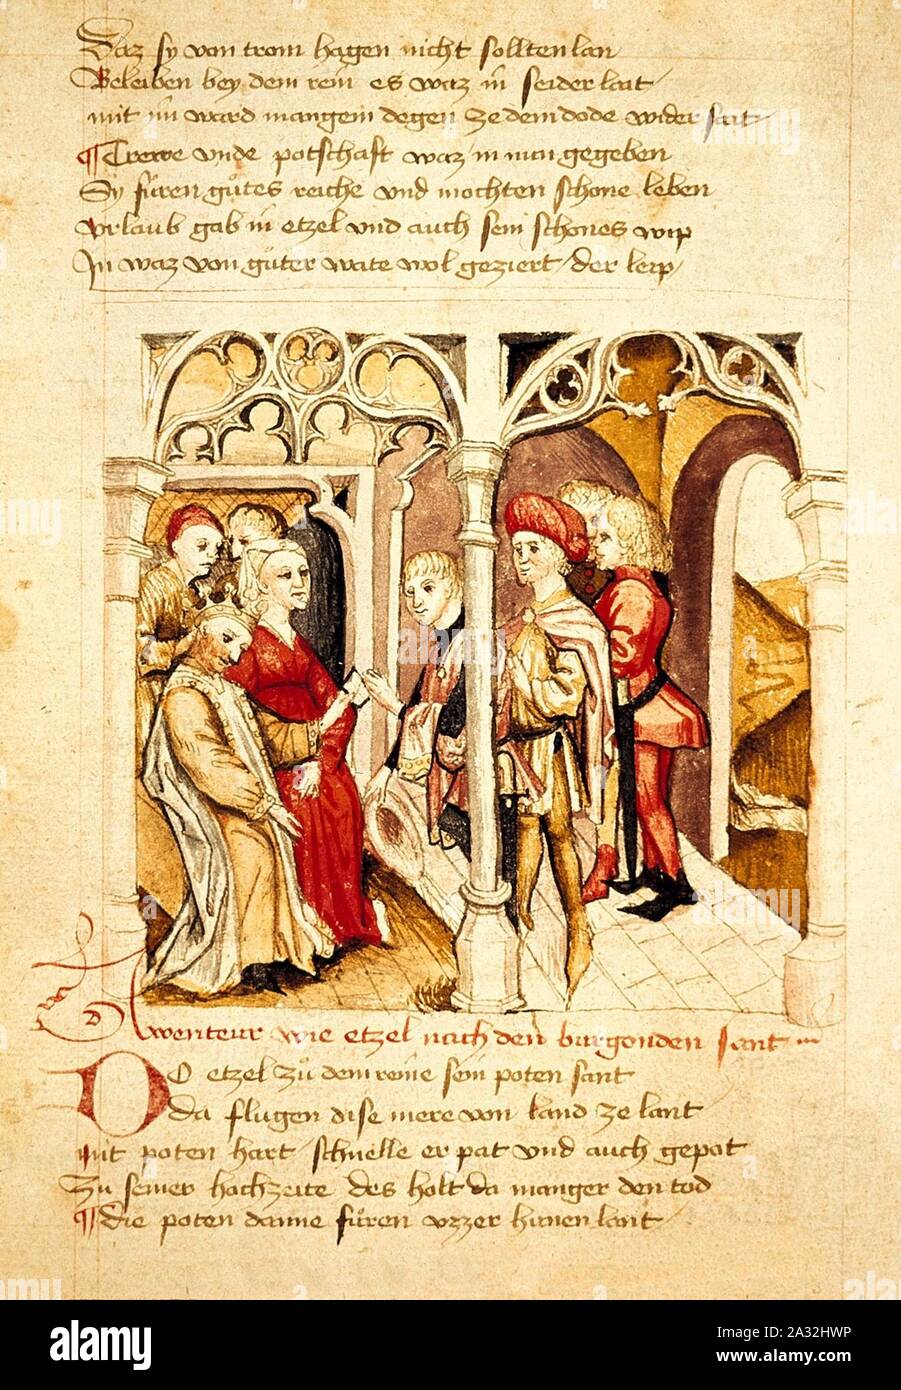 Daz sy von trom hagen nicht sollten lan
Beleiben bey dem rein es waz in seider lait
mit im ward mangem degen ze dem dode wider sait
Trewe unde potschaft waz in nun gegeben
Sy füren gütes reiche und mochten schone leben
Urlaub gab in etzel und auch sein schones wip
In waz von güter wate wol geziert der leip
Awenteur wie etzel nach den burgonden sant
DO etzel zü dem reine sein poten sant
da flugen dise mere von land ze lant
mit poten hart schnelle er pat und auch gepot
Zu seiner hochzeite des holt da manger den tod
die poten danne füren vzzer hunen lant
alamy
Image ID: 2A32HWP
www.alamy.com